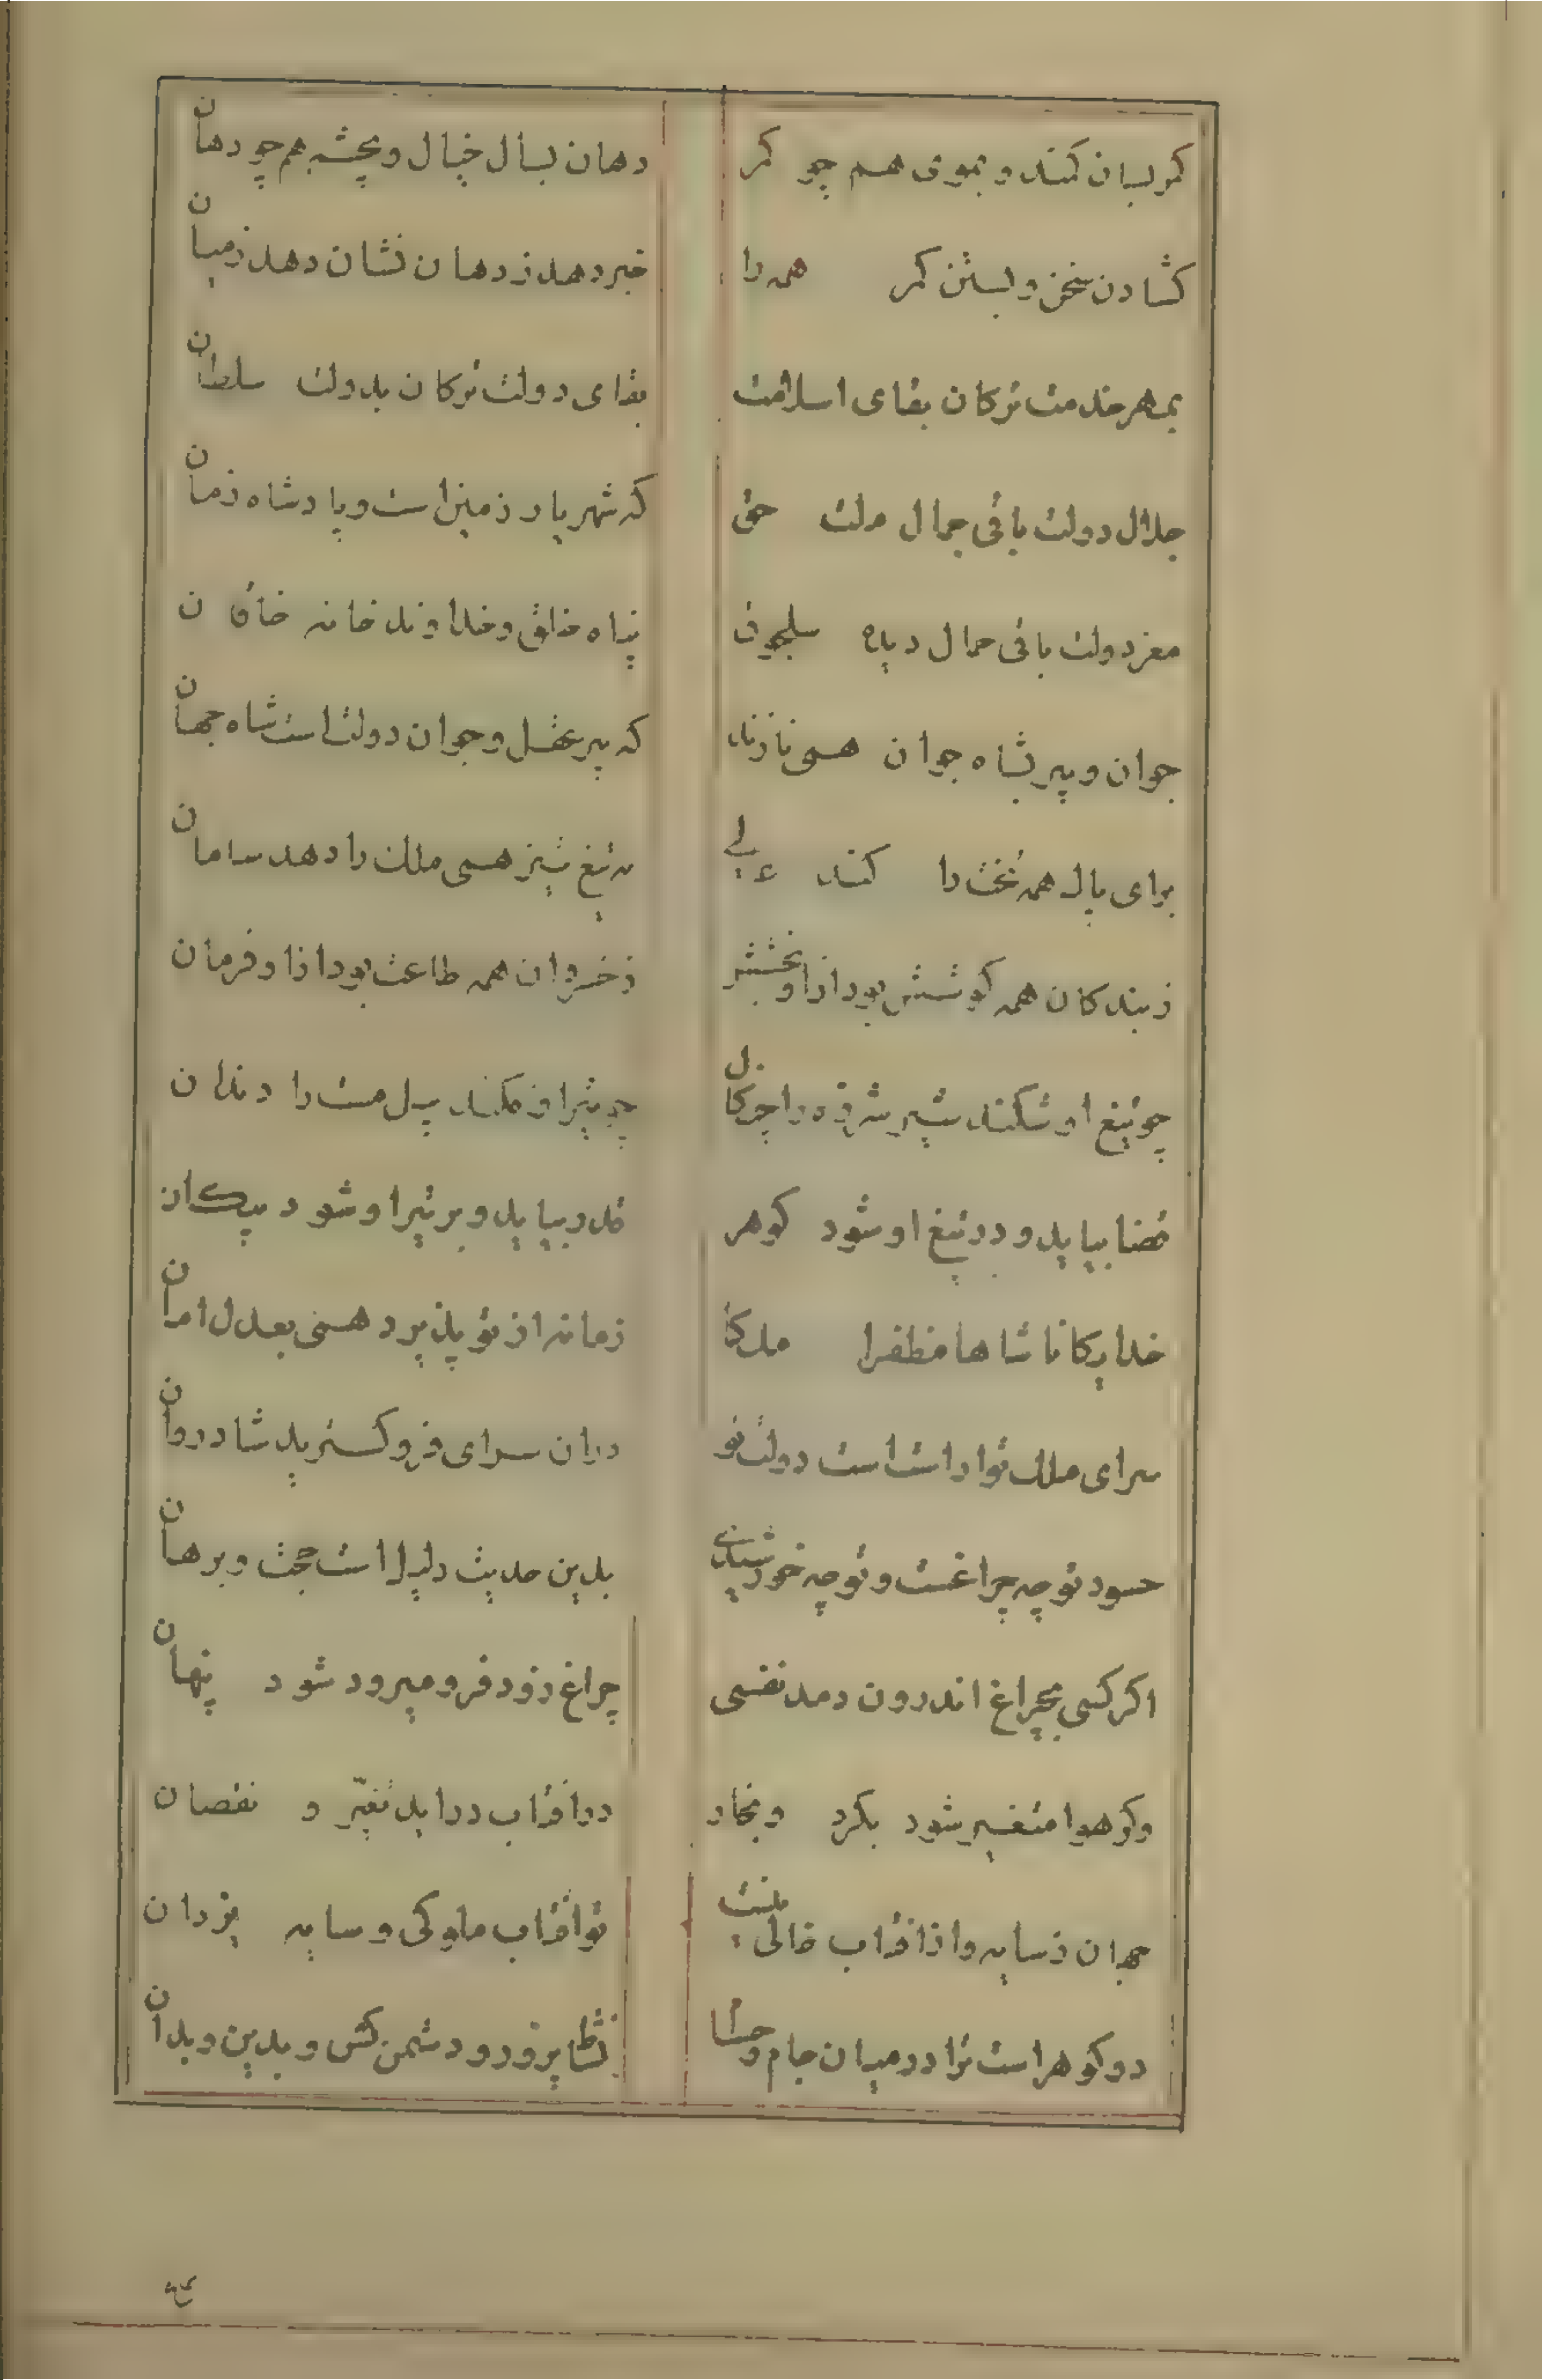 کمر بسان کمند و بموی هم چو کمر دهان بسال خیال و بچشم هم چو دهان
کشادن سخن و بستن کمر همه را خبر دهد ز دهان نشان دهد ز میان
بمهر خدمت ترکان بقای اسلامت بقای دولت ترکان بدولت سلطان
جلال دولت باقی جمال ملت حق که شهریار زمین است و پادشاه زمان
معز دولت باقی جمال دیده سلجوق پناه خلق و خداوند خانه خاقان
جوان و پیر بشاه جوان همی نازند که پیر عقل و جوان دولت است شاه جهان
برای پاک همه تخت را کند عالی به تیغ تیز همی ملک را دهد سامان
ز بندکان همه کوشش بود ازاو بخشش ز خسروان همه طاعت بود ازاو فرمان
چو تیغ او شکند شیر شرزه را چنکال چو تیر او فکند پیل مست را دندان
قضا بیاید و در تیغ او شود کوهر قدر بیاید و بر تیر او شود پیکان
خدایکانا شاها مظفرا ملکا زمانه از تو پذیرد همی بعدل امان
سرای ملک تو اراست است دولت تو دران سرای فرو کسترید شادروان
حسود تو چه چراغست و تو چه خورشیدی بدین حدیث دلیل است حجت و برهان
اکر کسی بچراغ اندرون دمد نفسی چراغ زود فرو میرود شود پنهان
وکر هوا متغیر شود بکرد و بخار در افتاب در اید تغیّر و نقصان
جهان ز سایه و از افتاب خالی نیست تو افتاب ملوکی و سایه یزدان
دو کوهر است ترا در میان جام و حسام نشاط پرور و دشمن کش و بدین و بدان